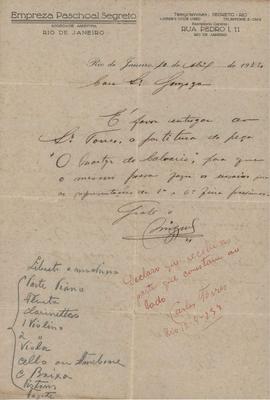 Empreza Paschoal Segreto
SOCIEDADE ANONYMA
RIO DE JANEIRO
Telegrammas: SEGRETO - RIO
RUA PEDRO I, 11
RIO DE JANEIRO
Rio de Janeiro, de Abril de
Caro Sr Gonzaga
É favor entregar ao
Sr Torres, a partitura da peça
"O Martyr do Calvario", para que
o mesmo possa fazer os ensaios para
as representações de 5ª e 6ª feira proximas
Grato
Declaro que recebi as
partes que constam ao
lado
Carlos Torres
Parte Piano
Flauta
Clarinettas
1 Violino
2 "
Viola
Cello ou Trombone
C. Baixo